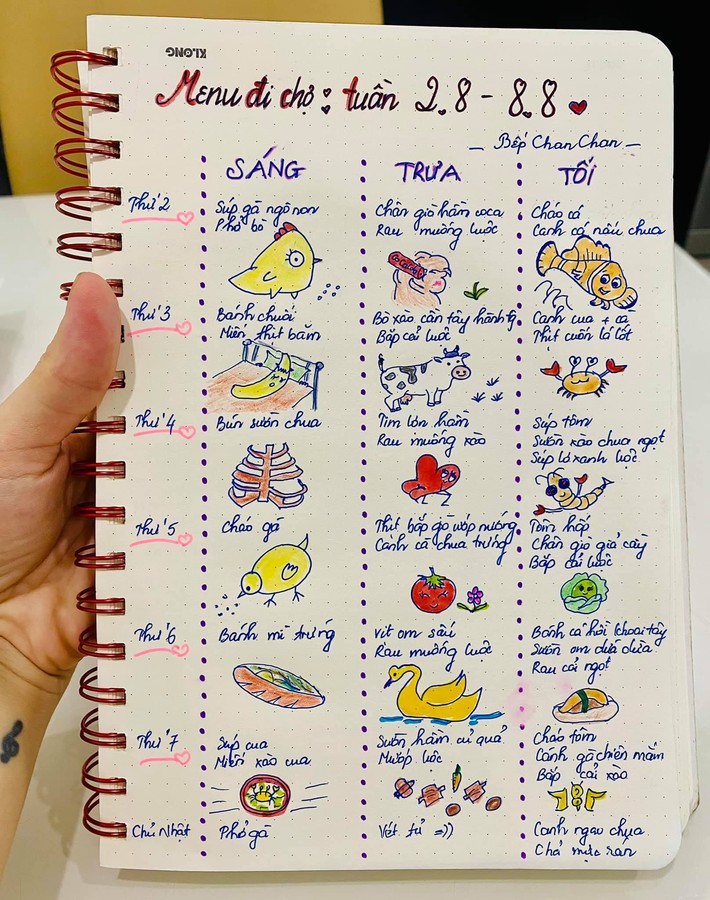 KLONG
Menu đi chợ: tuần 2.8 - 8.8
_ Bếp Chan Chan _
SÁNG TRƯA TỐI
Thứ 2
Súp gà ngô non
Phở bò
Chân giò hầm coca
Rau muống luộc
Cháo cá
Canh cá nấu chua
Coca Cola
Thứ 3
Bánh chuối
Miến thịt băm
Bò xào cần tây hành tây
Bắp cải luộc
Canh cua + cà
Thịt cuốn lá lốt
Thứ 4
Bún sườn chua
Tim lợn hầm
Rau muống xào
Súp tôm
Sườn xào chua ngọt
Súp lơ xanh luộc
Thứ 5
Cháo gà
Thịt bắp gà ướp nướng
Canh cà chua trứng
Tôm hấp
Chân giò giả cầy
Bắp cải luộc
Thứ 6
Bánh mì trứng
Vịt om sấu
Rau muống luộc
Bánh cá hồi khoai tây
Sườn om dứa dừa
Rau cải ngọt
Thứ 7
Súp cua
Miến xào cua
Sườn hầm củ quả
Mướp luộc
Cháo tôm
Cánh gà chiên mắm
Bắp cải xào
Chủ Nhật
Phở gà
Vét tủ =))
Canh ngao chua
Chả mực rán